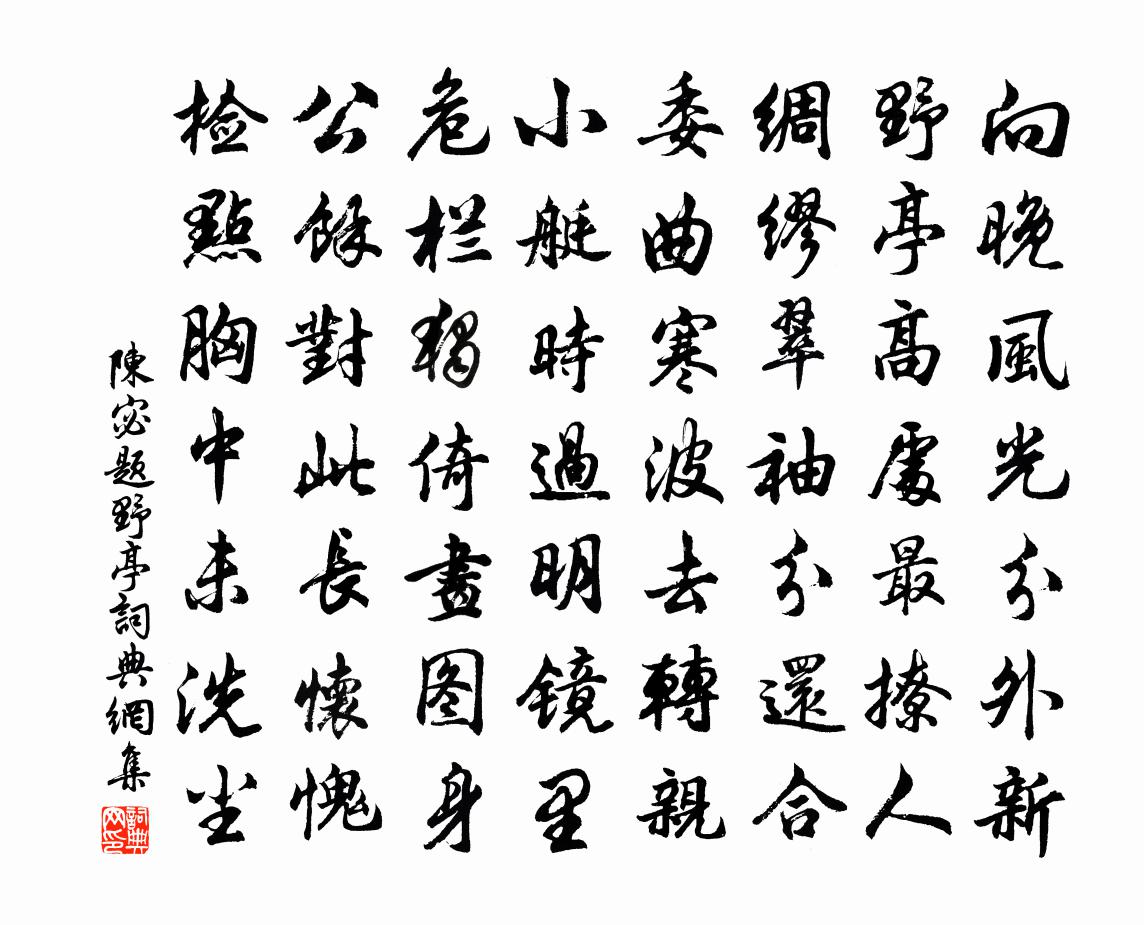 向晚風光分外新
野亭高處最撩人
綢缪翠袖分還合
委曲寒波去轉親
小艇時過明镜里
危栏獨倚畫图身
公餘對此長懷愧
檢點胸中未洗尘
陳宓題野亭詞典網集
詞典网印